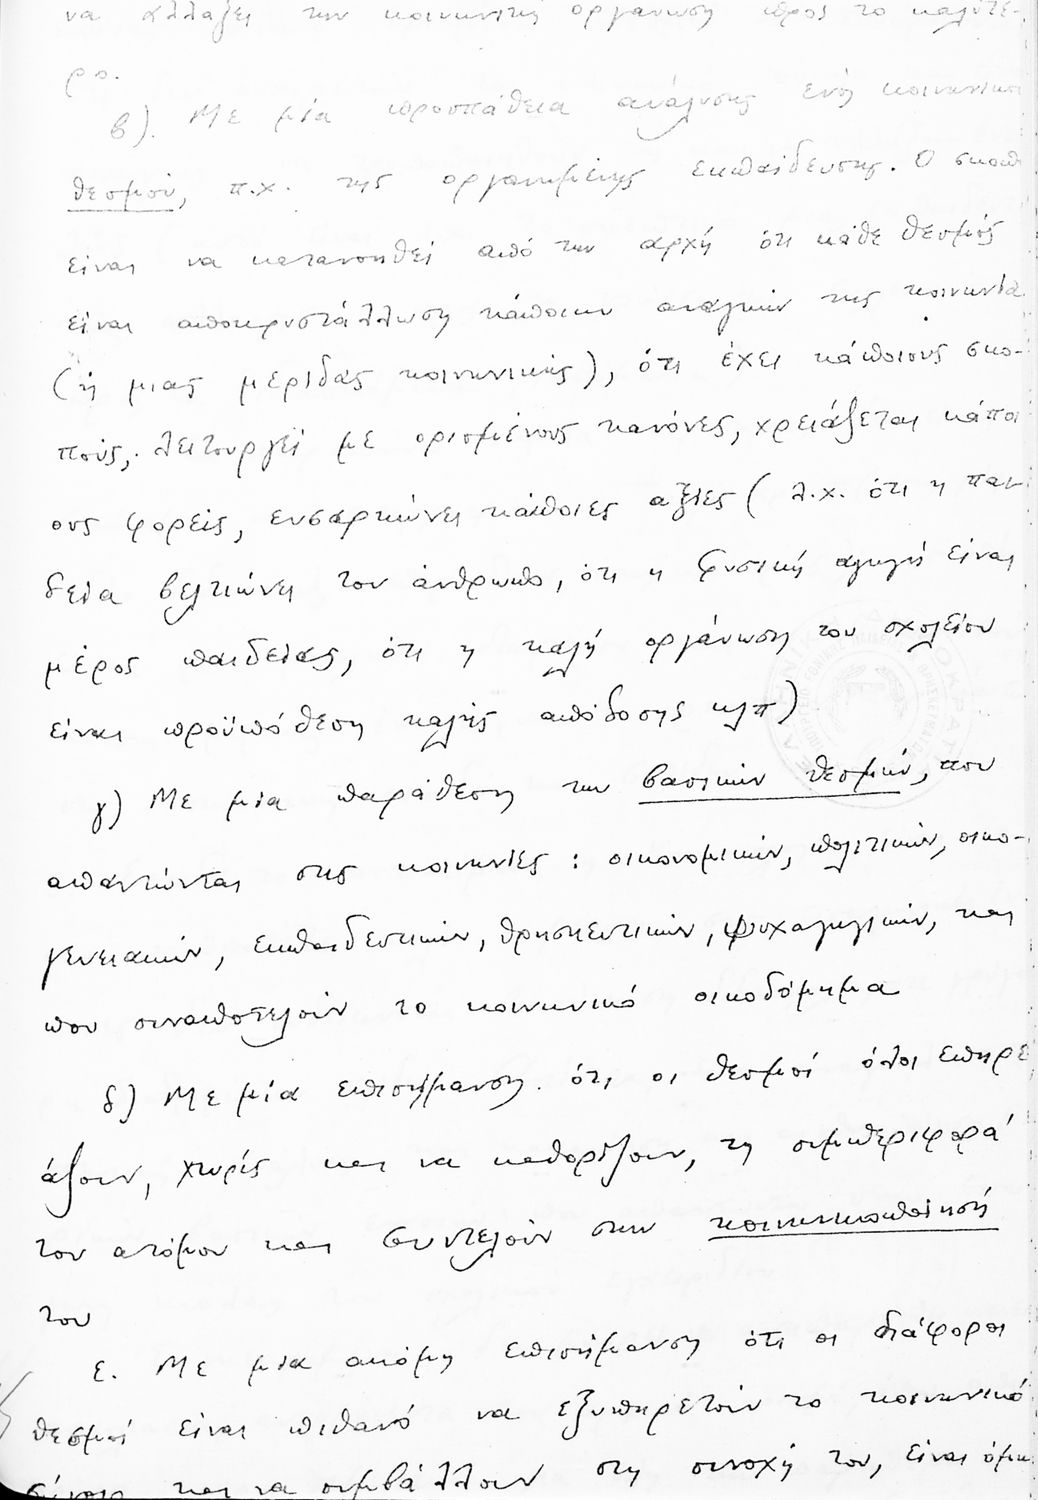 να αλλάξει την κοινωνική οργάνωση προς το καλύτε-
ρο.
β). Με μία προσπάθεια ανάλυσης ενός κοινωνικού
θεσμού, π.χ. της οργανωμένης εκπαίδευσης. Ο σκοπ
είναι να κατανοηθεί από την αρχή ότι κάθε θεσμός
είναι αποκρυστάλλωση κάποιων αναγκών της κοινωνία
(ή μιας μερίδας κοινωνικής), ότι έχει κάποιους σκο-
πούς, λειτουργεί με ορισμένους κανόνες, χρειάζεται κάποι
ους φορείς, ενσαρκώνει κάποιες αξίες (λ.χ. ότι η παι-
δεία βελτιώνει τον άνθρωπο, ότι η φυσική αγωγή είναι
μέρος παιδείας, ότι η καλή οργάνωση του σχολείου
είναι προϋπόθεση καλής απόδοσης κλπ)
γ) Με μια παράθεση των βασικών θεσμών, που
απαντώνται στις κοινωνίες: οικονομικών, πολιτικών, οικο-
γενειακών, εκπαιδευτικών, θρησκευτικών, ψυχαγωγικών, και
που συναποτελούν το κοινωνικό οικοδόμημα
δ) Με μία επισήμανση ότι οι θεσμοί όλοι επηρε
άζουν, χωρίς και να καθορίζουν, τη συμπεριφορά
του ατόμου και συντελούν στην κοινωνικοποίησή
του
ε. Με μια ακόμη επισήμανση ότι οι διάφοροι
θεσμοί είναι πιθανό να εξυπηρετούν το κοινωνικό
σύνολο και να συμβάλλουν στη συνοχή του, είναι όμω